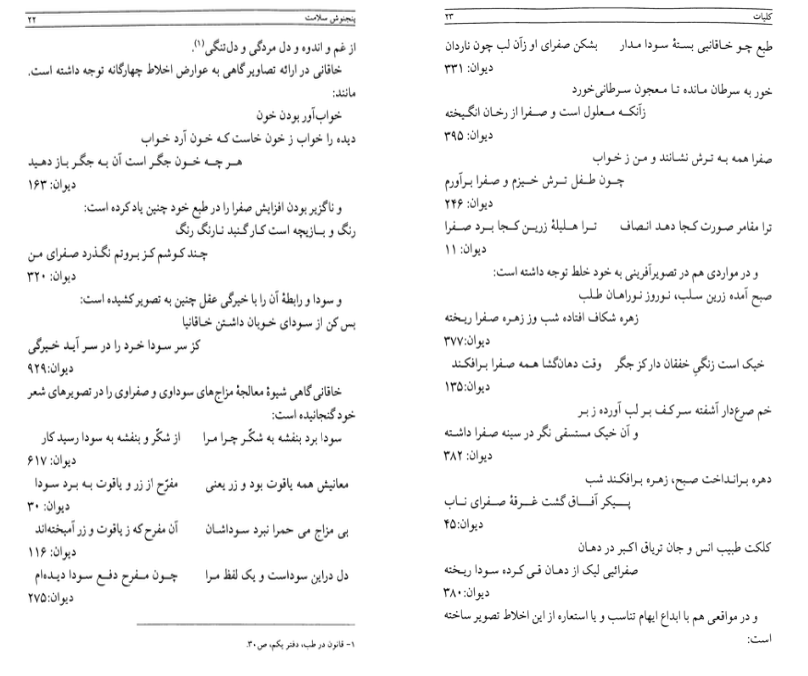 پنجنوش سلامت ۲۲
از غم و اندوه و دل مردگی و دل‌تنگی(۱).
خاقانی در ارائه تصاویر گاهی به عوارض اخلاط چهارگانه توجه داشته است.
مانند:
خواب‌آور بودن خون
دیده را خواب ز خون خاست که خون آرد خواب
هر چه خون جگر است آن به جگر باز دهید
دیوان: ۱۶۳
و ناگزیر بودن افزایش صفرا را در طبع خود چنین یاد کرده است:
رنگ و بازیچه است کار گنبد نارنگ رنگ
چند کوشم کز بروتم نگذرد صفرای من
دیوان: ۳۲۰
و سودا و رابطهٔ آن را با خیرگی عقل چنین به تصویر کشیده است:
بس کن از سودای خوبان داشتن خاقانیا
کز سر سودا خرد را در سر آید خیرگی
دیوان:۹۲۹
خاقانی گاهی شیوهٔ معالجهٔ مزاج‌های سوداوی و صفراوی را در تصویرهای شعر
خود گنجانیده است:
سودا برد بنفشه به شکّر چرا مرا از شکّر و بنفشه به سودا رسید کار
دیوان: ۶۱۷
معانیش همه یاقوت بود و زر یعنی مفرّح از زر و یاقوت به برد سودا
دیوان: ۳۰
بی مزاج می حمرا نبرد سوداشان آن مفرح که ز یاقوت و زر آمیخته‌اند
دیوان: ۱۱۶
دل دراین سوداست و یک لفظ مرا چون مفرح دفع سودا دیده‌ام
دیوان:۲۷۵
۱- قانون در طب، دفتر یکم، ص۳۰.
کلیات ۲۳
طبع چو خاقانیی بستهٔ سودا مدار بشکن صفرای او زآن لب چون ناردان
دیوان: ۳۳۱
خور به سرطان مانده تا معجون سرطانی‌خورد
زآنکه معلول است و صفرا از رخان انگیخته
دیوان: ۳۹۵
صفرا همه به ترش نشانند و من ز خواب
چون طفل ترش خیزم و صفرا برآورم
دیوان: ۲۴۶
ترا مقامر صورت کجا دهد انصاف ترا هلیلهٔ زرین کجا برد صفرا
دیوان: ۱۱
و در مواردی هم در تصویرآفرینی به خود خلط توجه داشته است:
صبح آمده زرین سلب، نوروز نوراهان طلب
زهره شکاف افتاده شب وز زهره صفرا ریخته
دیوان:۳۷۷
خیک است زنگیِ خفقان دار کز جگر وقت دهان‌گشا همه صفرا برافکند
دیوان:۱۳۵
خم صرع‌دار آشفته سر کف بر لب آورده ز بر
و آن خیک مستسقی نگر در سینه صفرا داشته
دیوان: ۳۸۲
دهره برانداخت صبح، زهره برافکند شب
پیکر آفاق گشت غرقهٔ صفرای ناب
دیوان:۴۵
کلکت طبیب انس و جان تریاق اکبر در دهان
صفرائیی لیک از دهان قی کرده سودا ریخته
دیوان:۳۸۰
و در مواقعی هم با ابداع ایهام تناسب و یا استعاره از این اخلاط تصویر ساخته
است: